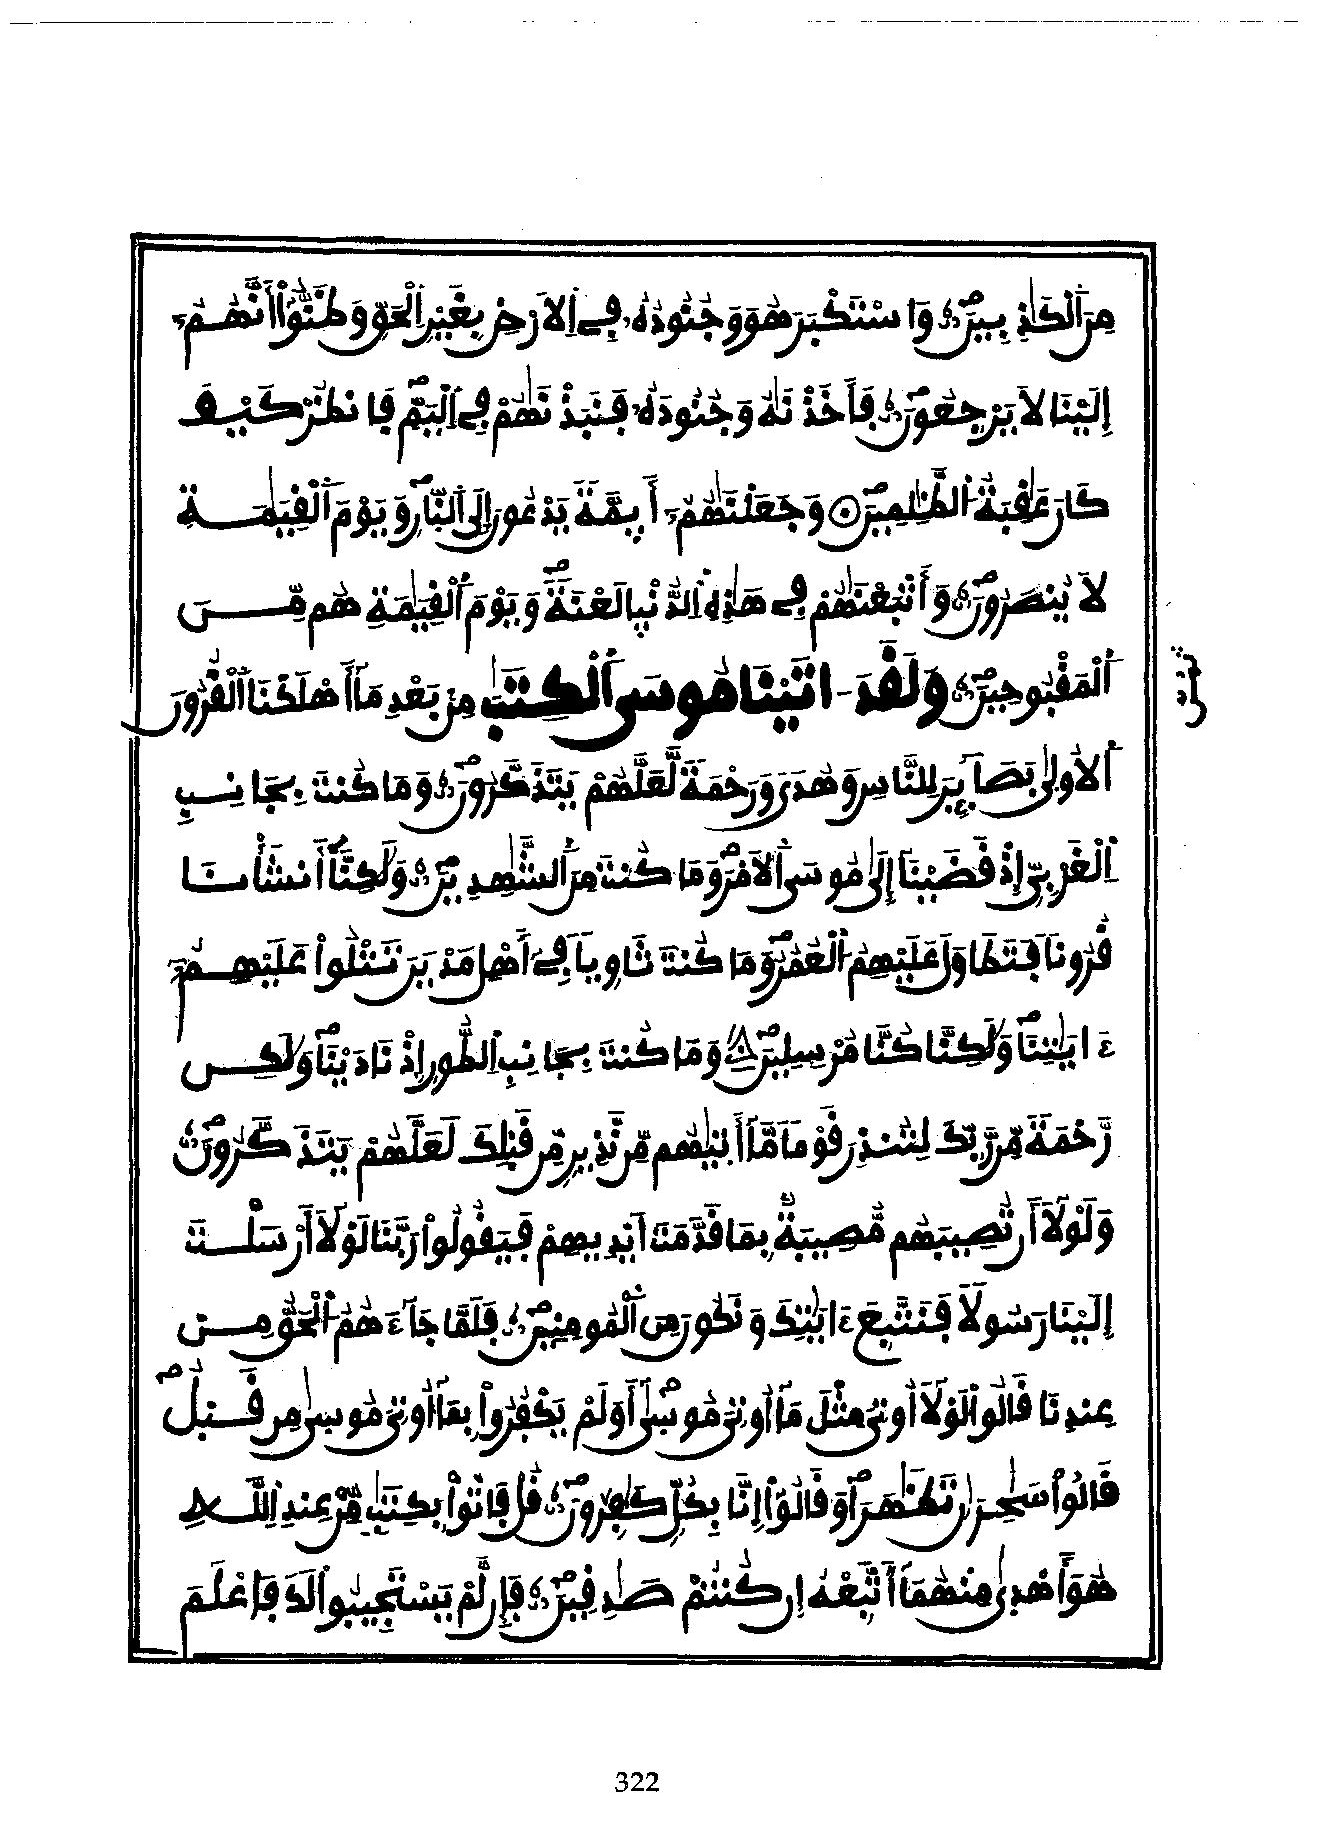 مِنَ اَ۬لْكَٰذِبِينَۖ وَاسْتَكْبَرَ هُوَ وَجُنُودُهُۥ فِے اِ۬لَارْضِ بِغَيْرِ اِ۬لْحَقِّ وَظَنُّوٓاْ أَنَّهُمُۥٓ
إِلَيْنَا لَا يَرْجِعُونَۖ فَأَخَذْنَٰهُ وَجُنُودَهُۥ فَنَبَذْنَٰهُمْ فِے اِ۬لْيَمِّۖ فَانظُرْ كَيْفَ
كَانَ عَٰقِبَةُ اُ۬لظَّٰلِمِينَۖ وَجَعَلْنَٰهُمُۥٓ أَيِمَّةٗ يَدْعُونَ إِلَي اَ۬لنّ۪ارِۖ وَيَوْمَ اَ۬لْقِيَٰمَةِ
لَا يُنصَرُونَۖ وَأَتْبَعْنَٰهُمْ فِے هَٰذِهِ اِ۬لدُّنْي۪ا لَعْنَةٗۖ وَيَوْمَ اَ۬لْقِيَٰمَةِ هُم مِّنَ
اَ۬لْمَقْبُوحِينَۖ وَلَقَدَ اٰتَيْنَا مُوسَي اَ۬لْكِتَٰبَ مِنۢ بَعْدِ مَآ أَهْلَكْنَا اَ۬لْقُرُونَ
اَ۬لُاول۪يٰ بَصَآئِرَ لِلنَّاسِ وَهُديٗ وَرَحْمَةٗ لَّعَلَّهُمْ يَتَذَكَّرُونَۖ وَمَا كُنتَ بِجَانِبِ
اِ۬لْغَرْبِيِّ إِذْ قَضَيْنَآ إِلَيٰ مُوسَي اَ۬لَامْرَۖ وَمَا كُنتَ مِنَ اَ۬لشَّٰهِدِينَۖ وَلَٰكِنَّآ أَنشَأْنَا
قُرُوناٗ فَتَطَاوَلَ عَلَيْهِمُ اُ۬لْعُمُرُۖ وَمَا كُنتَ ثَاوِياٗ فِےٓ أَهْلِ مَدْيَنَ تَتْلُواْ عَلَيْهِمُۥٓ
ءَايَٰتِنَاۖ وَلَٰكِنَّا كُنَّا مُرْسِلِينَۖ وَمَا كُنتَ بِجَانِبِ اِ۬لطُّورِ إِذْ نَادَيْنَاۖ وَلَٰكِن
رَّحْمَةٗ مِّن رَّبِّكَ لِتُنذِرَ قَوْماٗ مَّآ أَت۪يٰهُم مِّن نَّذِيرٖ مِّن قَبْلِكَ لَعَلَّهُمْ يَتَذَكَّرُونَۖ
وَلَوْلَآ أَن تُصِيبَهُم مُّصِيبَةُۢ بِمَا قَدَّمَتَ اَيْدِيهِمْ فَيَقُولُواْ رَبَّنَا لَوْلَآ أَرْسَلْتَ
إِلَيْنَا رَسُولاٗ فَنَتَّبِعَ ءَايَٰتِكَ وَنَكُونَ مِنَ اَ۬لْمُومِنِينَۖ فَلَمَّا جَآءَهُمُ اُ۬لْحَقُّ مِنْ
عِندِنَا قَالُواْ لَوْلَآ أُوتِيَ مِثْلَ مَآ أُوتِيَ مُوس۪يٰٓۖ أَوَلَمْ يَكْفُرُواْ بِمَآ أُوتِيَ مُوس۪يٰ مِن قَبْلُۖ
قَالُواْ سَٰحِرَٰنِ تَظَّٰهَرَاۖ وَقَالُوٓاْ إِنَّا بِكُلّٖ كَٰفِرُونَۖ قُلْ فَاتُواْ بِكِتَٰبٖ مِّنْ عِندِ اِ۬للَّهِ
هُوَ أَهْد۪يٰ مِنْهُمَآ أَتَّبِعْهُ إِن كُنتُمْ صَٰدِقِينَۖ فَإِن لَّمْ يَسْتَجِيبُواْ لَكَ فَاعْلَمَ
ثمن
322